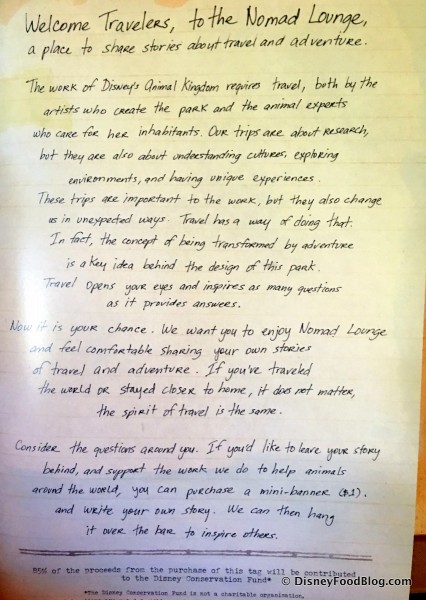 Welcome Travelers, to the Nomad Lounge,
a place to share stories about travel and adventure.
The work of Disney's Animal Kingdom requires travel, both by the
artists who create the park and the animal experts
who care for her inhabitants. Our trips are about research,
but they are also about understanding cultures, exploring
environments, and having unique experiences.
These trips are important to the work, but they also change
us in unexpected ways. Travel has a way of doing that.
In fact, the concept of being transformed by adventure
is a key idea behind the design of this park.
Travel opens your eyes and inspires as many questions
as it provides answers.
Now it is your chance. We want you to enjoy Nomad Lounge
and feel comfortable sharing your own stories
of travel and adventure. If you've traveled
the world or stayed closer to home, it does not matter,
the spirit of travel is the same.
Consider the questions around you. If you'd like to leave your story
behind, and support the work we do to help animals
around the world, you can purchase a mini-banner ($1).
and write your own story. We can then hang
it over the bar to inspire others.
85% of the proceeds from the purchase of this tag will be contributed
to the Disney Conservation Fund*
*The Disney Conservation Fund is not a charitable organization.
© DisneyFoodBlog.com